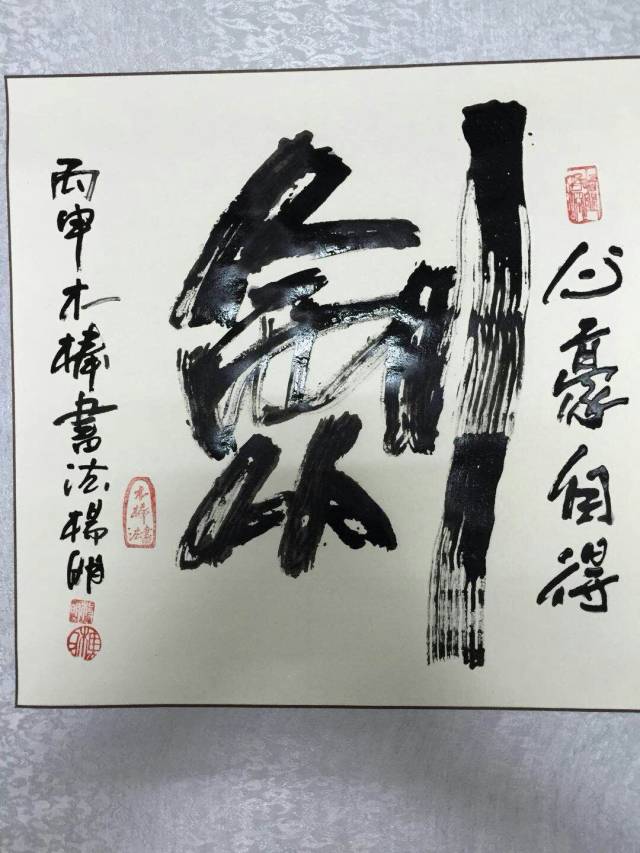 心豪自得
劍
丙申木棒書法楊明
木棒書法